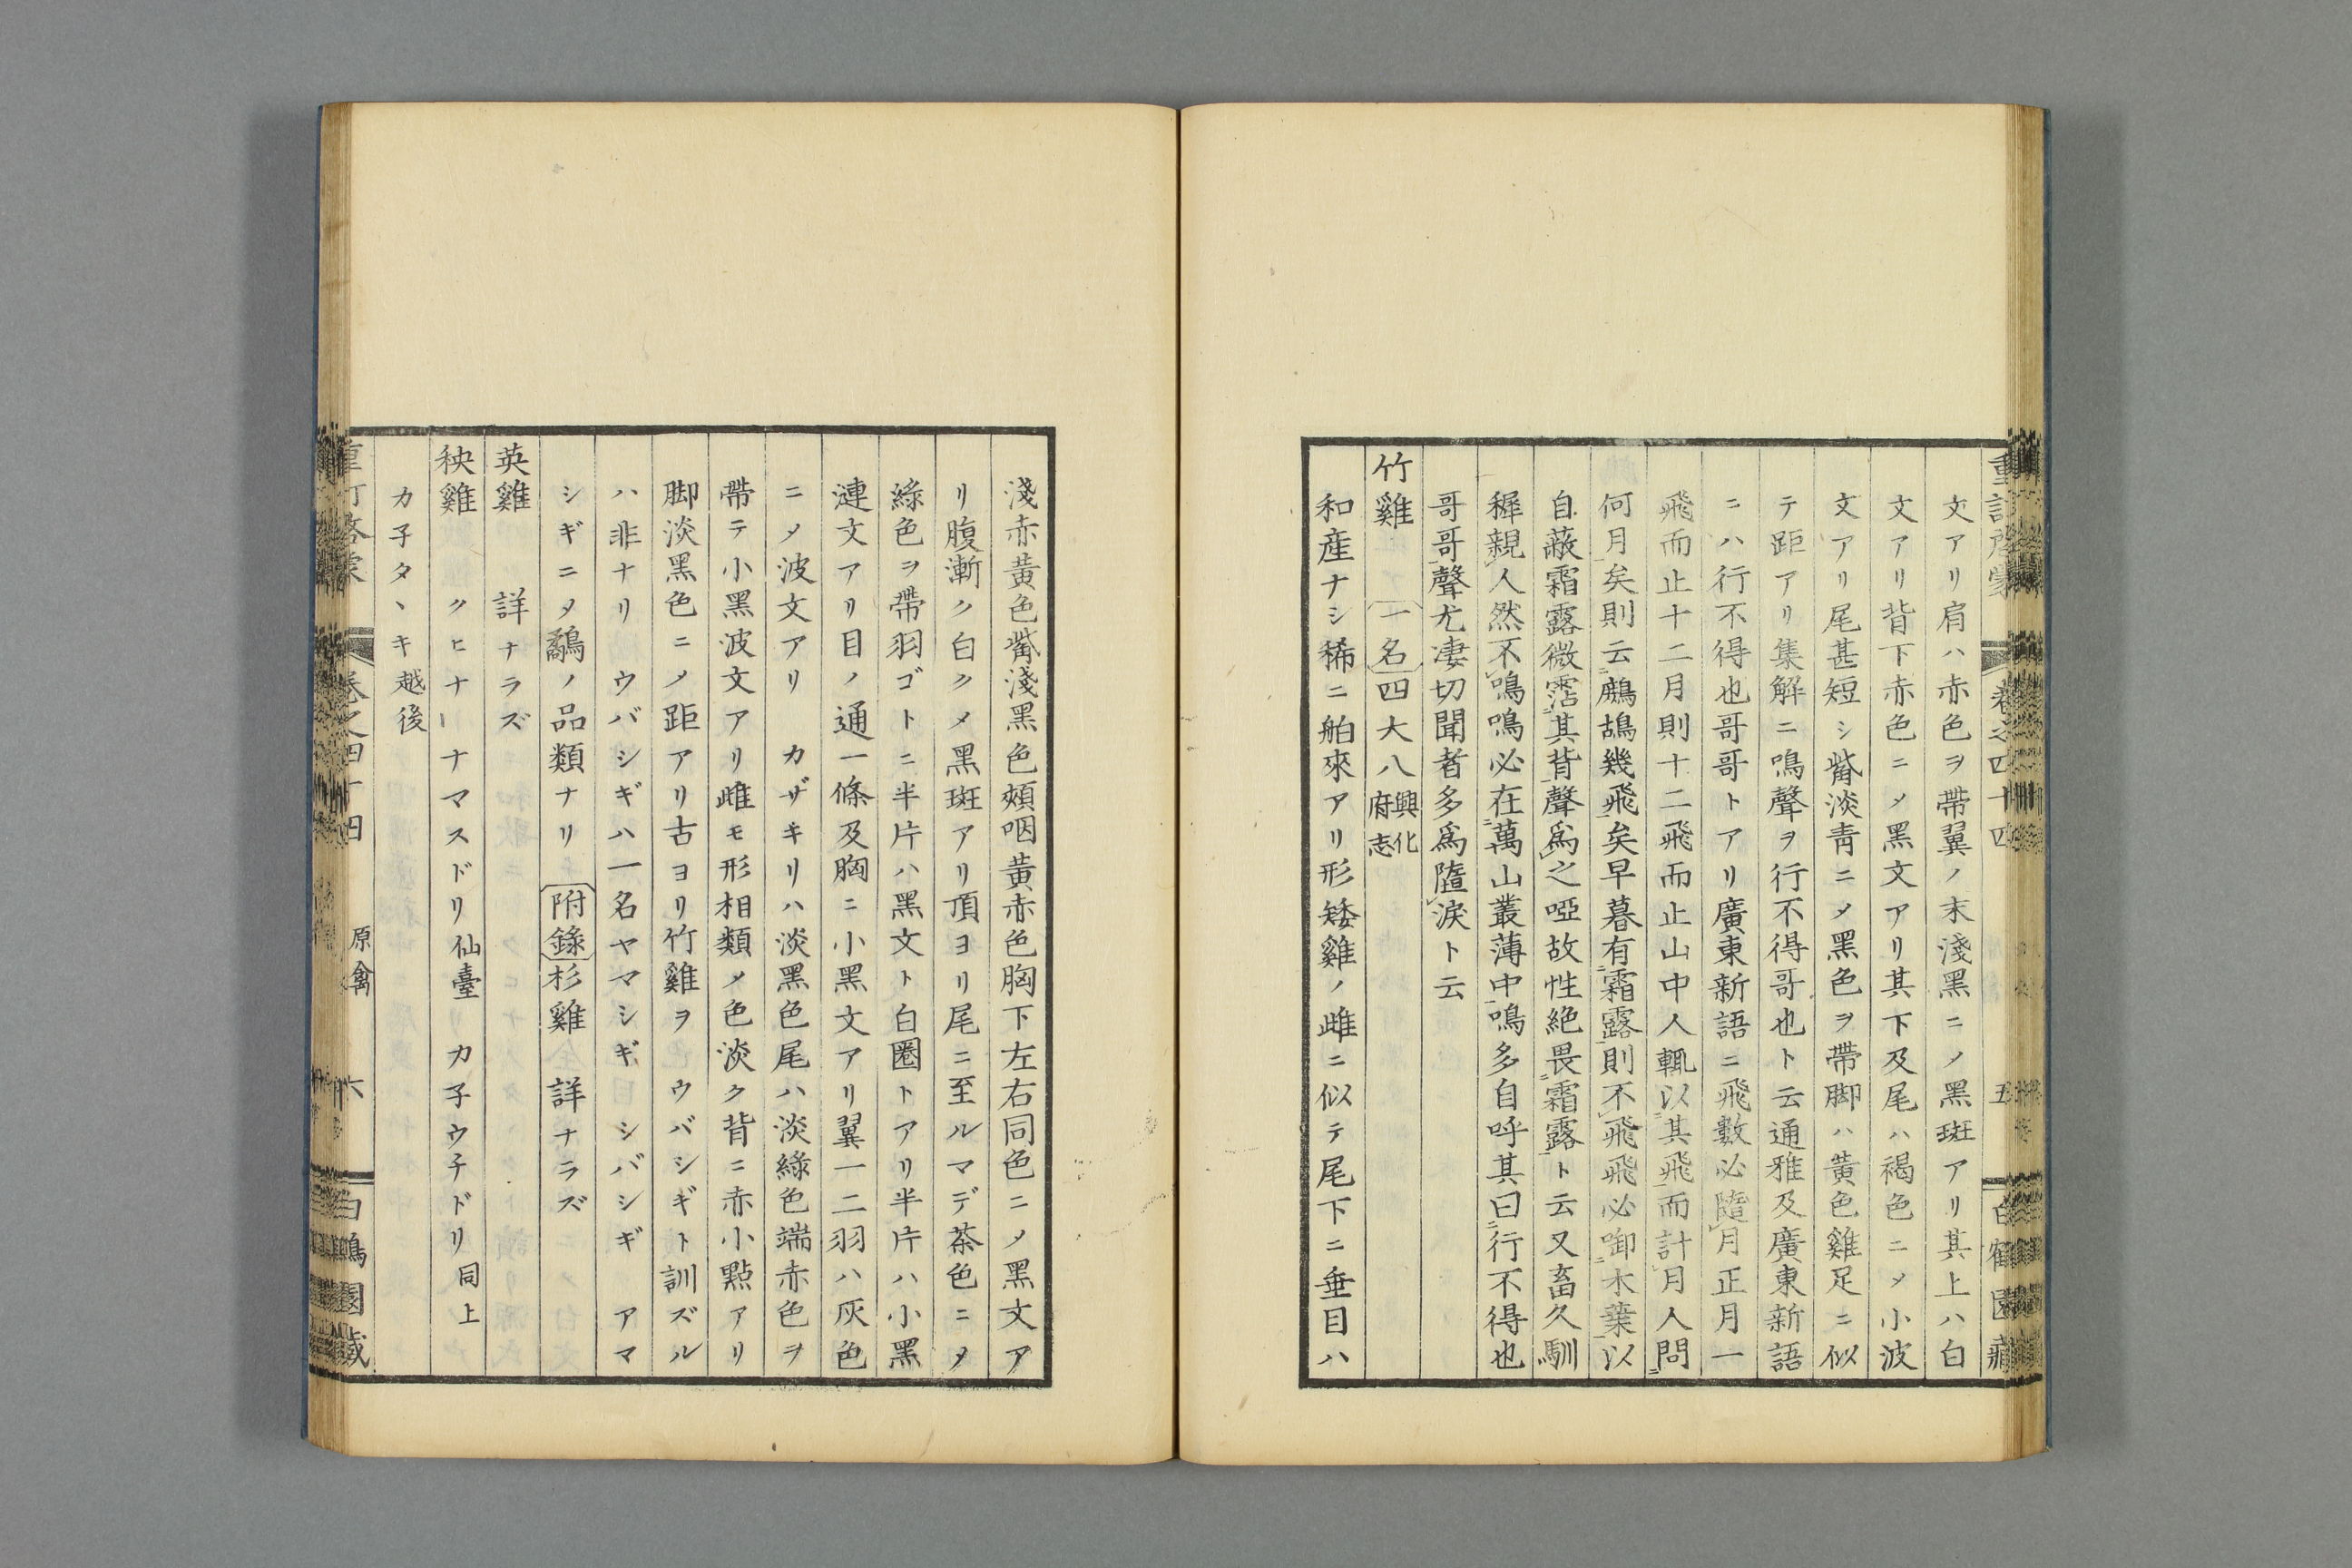 文アリ肩ハ赤色ヲ帶翼ノ末淺黑ニ〆黑斑アリ其上ハ白
文アリ背下赤色ニ〆黑文アリ其下及尾ハ褐色ニ〆小波
文アリ尾甚短シ觜淡青ニ〆黑色ヲ帶脚ハ黃色雞足ニ似
テ距アリ集解ニ鳴聲ヲ行不得哥也ト云通雅及廣東新語
ニハ行不得也哥哥トアリ廣東新語ニ飛數必隨月正月一
飛而止十二月則十二飛而止山中人輒以其飛而計月人問
何月矣則云鷓鴣幾飛矣早暮有霜露則不飛飛必啣木葉以
自蔽霜露微霑其背聲爲之啞故性絕畏霜露ト云又畜久馴
穉親人然不鳴鳴必在萬山叢薄中鳴多自呼其曰行不得也
哥哥聲尤凄切聞者多爲墮淚ト云
竹雞 一名 四大八 興化府志
和産ナシ稀ニ舶來アリ形矮雞ノ雌ニ似テ尾下ニ垂目ハ
淺赤黃色觜淺黑色頰咽黃赤色胸下左右同色ニ〆黑文ア
リ腹漸ク白ク〆黑斑アリ頂ヨリ尾ニ至ルマデ茶色ニ〆
綠色ヲ帶羽ゴトニ半片ハ黑文ト白圈トアリ半片ハ小黑
漣文アリ目ノ通一條及胸ニ小黑文アリ翼一二羽ハ灰色
ニ〆波文アリ カザキリハ淡黑色尾ハ淡綠色端赤色ヲ
帶テ小黑波文アリ雌モ形相類〆色淡ク背ニ赤小點アリ
脚淡黑色ニ〆距アリ古ヨリ竹雞ヲ ウバシギト訓ズル
ハ非ナリ ウバシギハ一名ヤマシギ シバシギ アマ
シギニ〆鷸ノ品類ナリ 附錄 杉雞 詳ナラズ
英雞 詳ナラズ
秧雞 クヒナ ナマスドリ 仙臺 カ子ウチドリ 同上
カ子タヽキ 越後
重訂啓蒙 卷之四十四 原禽 六